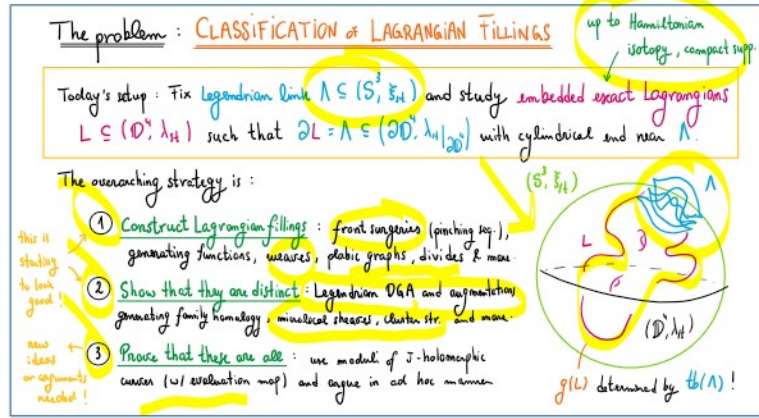 The problem : CLASSIFICATION of LAGRANGIAN FILLINGS
up to Hamiltonian
isotopy, compact supp.
Today's setup : Fix Legendrian link Λ ⊆ (S³, ξst) and study embedded exact Lagrangians
L ⊆ (D⁴, λst) such that ∂L = Λ ⊆ (∂D⁴, λst|∂D⁴) with cylindrical end near Λ.
The overarching strategy is :
① Construct Lagrangian fillings : front surgeries (pinching seq.),
generating functions, weaves, plabic graphs, divides & more.
② Show that they are distinct : Legendrian DGA and augmentations
generating family homology, microlocal sheaves, cluster str. and more.
③ Prove that these are all : use moduli of J-holomorphic
curves (w/ evaluation map) and argue in ad hoc manner
this is
starting
to look
good !
new
ideas
or arguments
needed !
(S³, ξst)
Λ
L
(D⁴, λst)
g(L) determined by tb(Λ) !